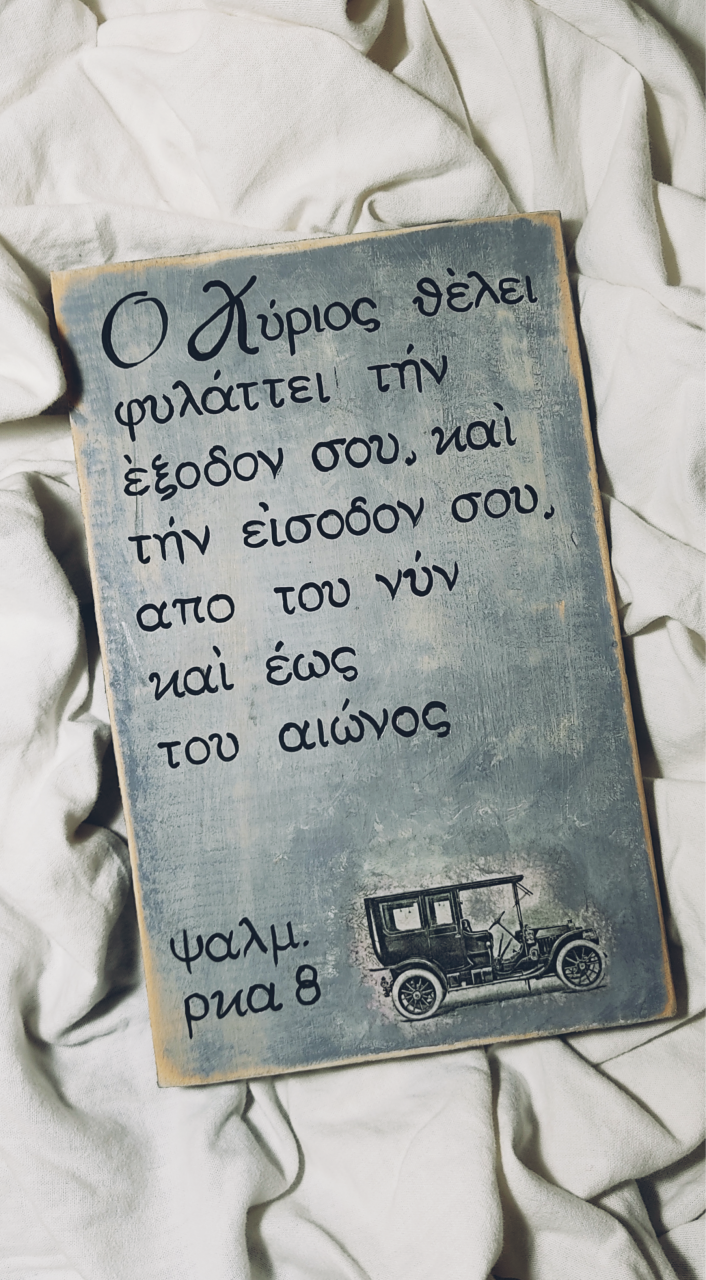 Ο Κύριος θὲλει
φυλάττει τήν
ὲξοδον σου, καὶ
τήν εἰσοδον σου,
απο του νύν
καὶ έως
του αιώνος
ψαλμ.
ρκα 8